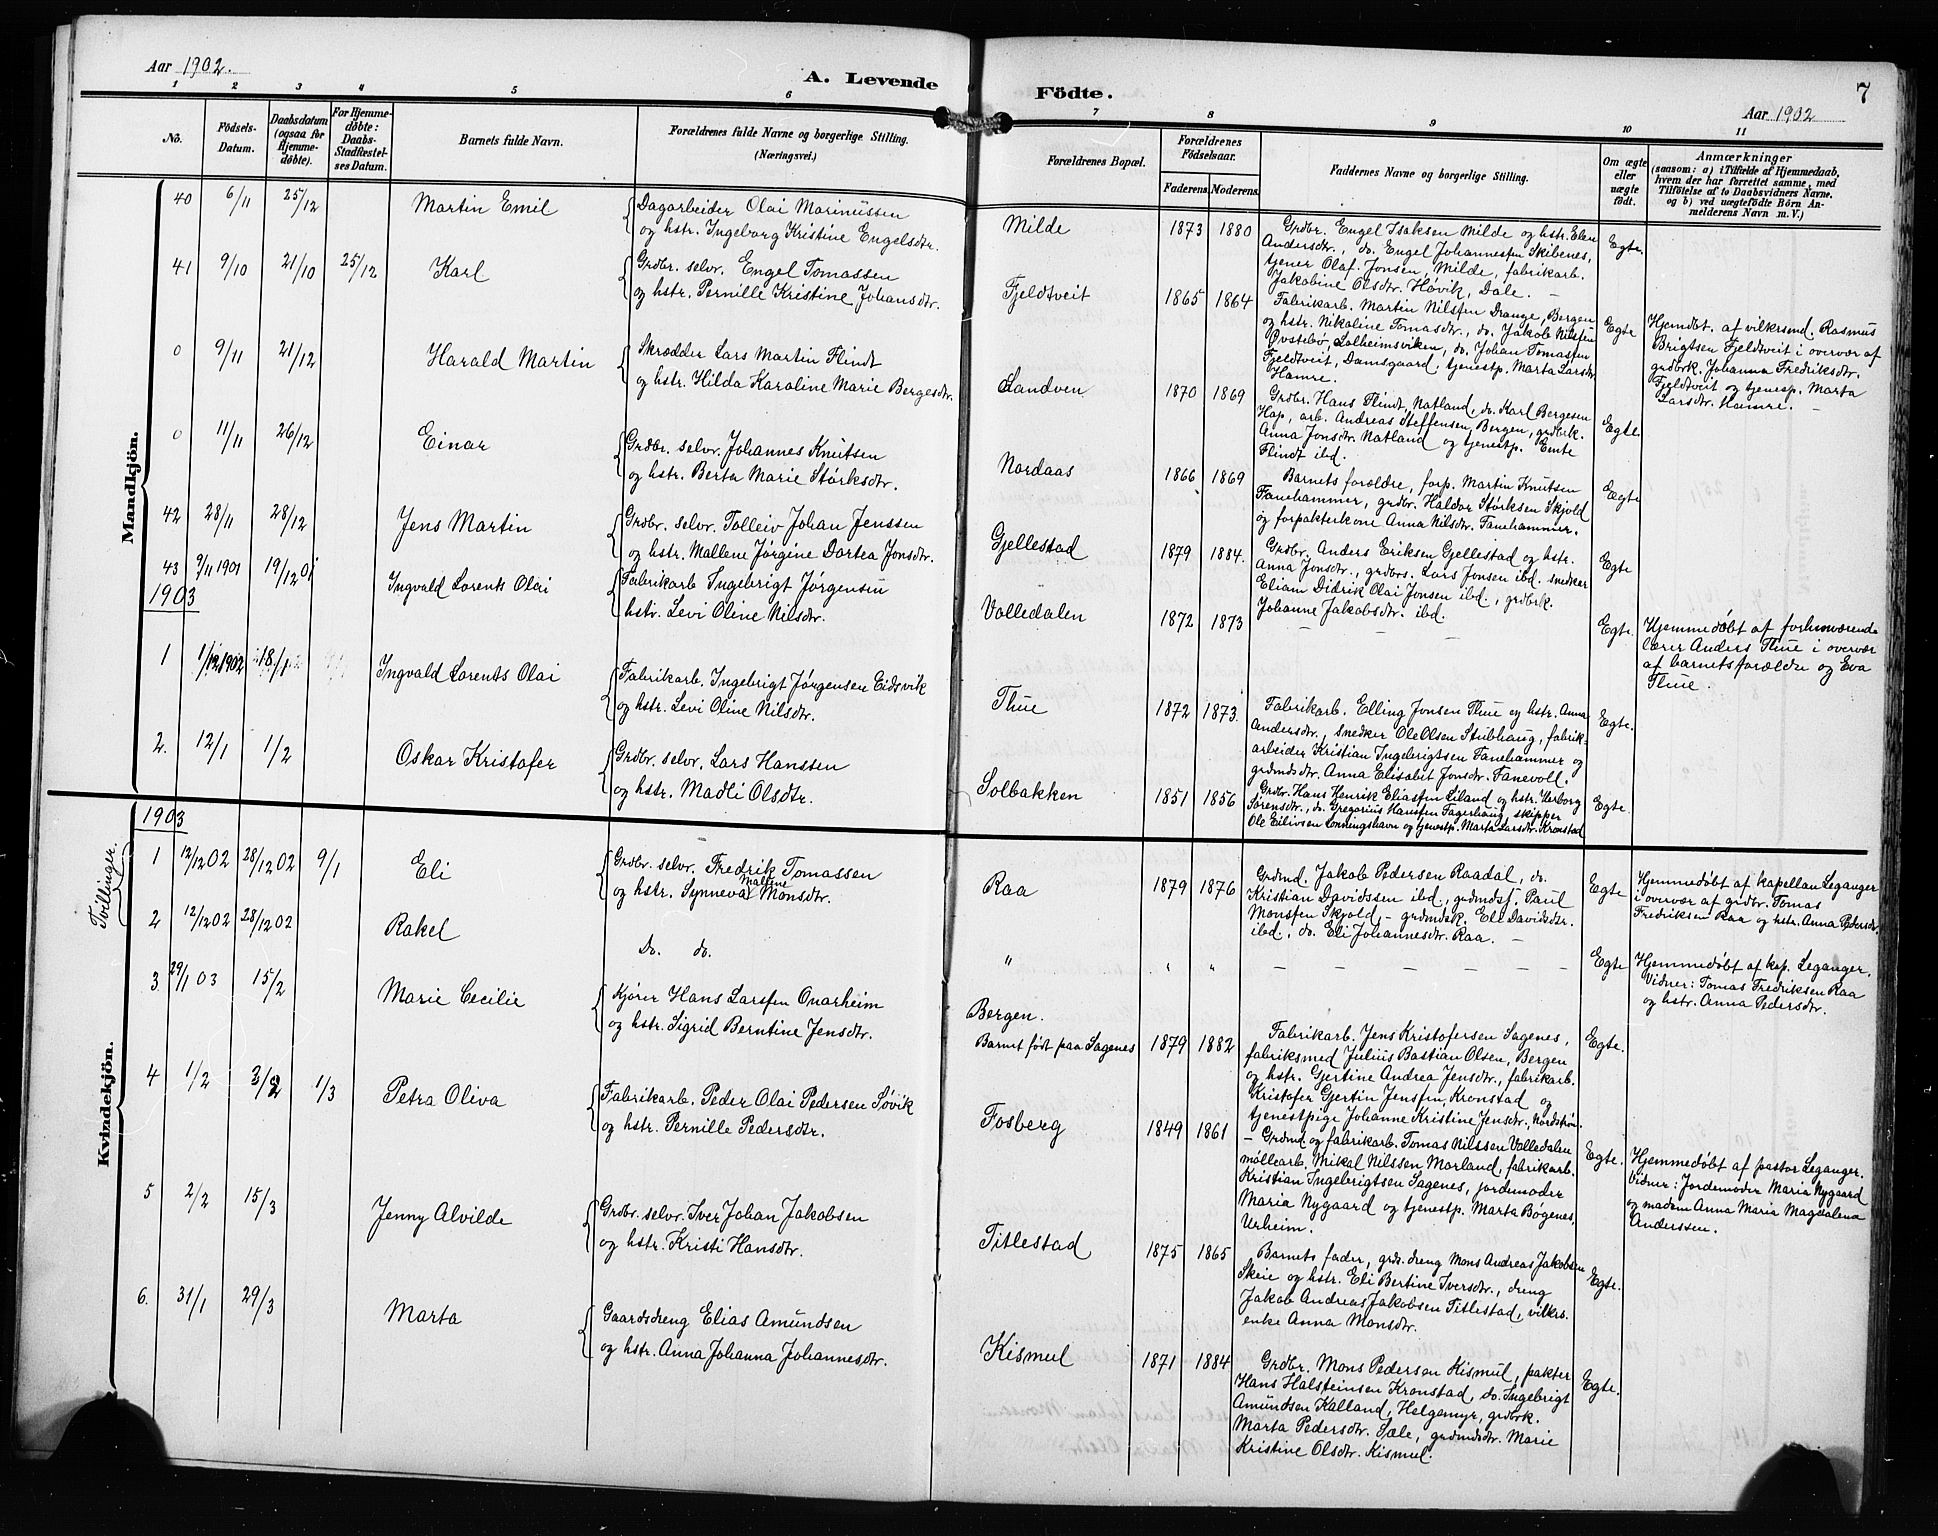 Aar 1902.
A. Levende Födte.
7
Aar 1902
1 2 3 4 5 6 7 8 9 10 11
No.
Födsels-Datum.
Daabsdatum (ogsaa for Hjemme-døbte).
For Hjemme-døbte: Daabs-Stadfæstel-ses Datum.
Barnets fulde Navn.
Forældrenes fulde Navne og borgerlige Stilling. (Næringsvei.)
Forældrenes Bopæl.
Forældrenes Födselsaar.
Faderens. Moderens.
Faddernes Navne og borgerlige Stilling.
Om ægte eller uægte födt.
Anmærkninger
(saasom: a) i Tilfælde af Hjemmedaab,
hvem der har forrettet samme, med
Tilföielse af to Daabsvidners Navne,
og b) ved uægtefödte Börn An-
melderens Navn m. V.)
Mandkjön.
40 6/11 25/12 Martin Emil
Dagarbeider Olai Marinussen
og hstr. Ingeborg Kristine Engelsdtr.
Milde 1873 1880
Grdbr. Engel Isaksen Milde og hstr. Elen
Andersdtr., do. Engel Johannessen Skibenes,
tjener Olaf Jonsen, Milde, fabrikarb.
Jakobine Olsdtr. Høvik, Dale. –
Egte.
41 9/10 21/10 25/12 Karl
Grdbr. selv. Engel Tomassen
og hstr. Pernille Kristine Johansdtr.
Fjeldtveit 1865 1864
Fabrikarb. Martin Nilsen Drange, Bergen
og hstr. Nikoline Tomasdtr., do. Jakob Nilsen
Øvstebø, Lolheimsviken, do. Johan Tomassen
Fjeldtveit, Damsgaard, tjenestp. Marta Larsdtr.
Hamre.
Egte
Hjemdbt. af vilkrsmd. Rasmus
Brigtsen Fjeldtveit i overvær af
grdbrk. Johanna Fredriksdtr.
Fjeldtveit og tjenesp. Marta
Larsdtr. Hamre. –
0 9/11 21/12 Harald Martin
Skrædder Lars Martin Flindt
og hstr. Hilda Karoline Marie Bergesdtr.
Sandven 1870 1869
Grdbr. Hans Flindt, Natland, do. Karl Bergesen
Hop, arb. Andreas Steffensen, Bergen, grdbrk.
Anna Jonsdtr. Natland og tjenestp. Emte
Flindt ibd.
Egte.
0 11/11 26/12 Einar
Grdbr. selv. Johannes Knutsen
og hstr. Berta Marie Størksdtr.
Nordaas 1866 1869
Barnets forældre, forp. Martin Knutsen
Fanehammer, grdbr. Haldor Størksen Skjold
og forpakterkone Anna Nilsdtr. Fanehammer.
Egte
42 28/11 28/12 Jens Martin
Grdbr. selv. Tolleiv Johan Jenssen
og hstr. Mallene Jørgine Dortea Jonsdtr.
Gjellestad 1879 1884.
Grdbr. Anders Eriksen Gjellestad og hstr.
Anna Jonsdtr., grdbrs. Lars Jonsen ibd. snedker
Eliam Didrik Olai Jonsen ibd., grdbrk.
Johanne Jakobsdtr. ibd.
Egte
43 9/11 1901 19/12 01 Ingvald Lorents Olai
Fabrikarb Ingebrigt Jørgensen
hstr. Levi Oline Nilsdtr.
Valledalen 1872 1873 – – – –
Egte.
Hjemmedøbt af forhenværende
lærer Anders Thue i overvær
af barnets forældre og Eva
Thue.
1903
1 1/12 1902 18/1 Ingvald Lorents Olai
Fabrikarb. Ingebrigt Jørgensen Eidsvik
og hstr. Levi Oline Nilsdtr.
Thue 1872 1873.
Fabrikarb. Elling Jonsen Thue og hstr. Anna
Andersdtr., snedker Ole Olsen Stubhaug, fabrik-
arbeider Kristian Ingebrigtsen Fanehammer og
grdmdsdtr. Anna Elisabet Jonsdtr. Fanevoll.
Egte.
2. 12/1 1/2 Oskar Kristofer
Grdbr. selv. Lars Hanssen
og hstr. Madli Olsdtr.
Solbakken 1851 1856
Grdbr. Hans Henrik Eliassen Liland og hstr. Verborg
Sørensdtr., do. Gregorius Hanssen Fagerhaug, skipper
Ole Eilivsen Lonningshavn og tjenestp. Marta Larsdtr. Kronstad
Egte.
Kvindekjön.
1903
Tvillinger.
1 12/12 02 28/12 02 9/1 Eli
Grdbr. selv. Fredrik Tomassen
og hstr. Synneva Mallene Monsdtr.
Raa 1879 1876
Grdmd. Jakob Pedersen Raadal, do.
Kristian Davidssen ibd., grdmdsf. Paul
Monssen Skjold, – grdmdsk. Eli Davidsdtr.
ibd., do. Eli Johannesdtr. Raa. –
Egte
Hjemmedøbt af kapellan Leganger
i overvær af grdbr. Tomas
Fredriksen Raa og hstr. Anna Pedersdtr.
2 12/12 02 28/12 02 Rakel
Do. do.
" " " – – – – – –
Egte
Hjemmedøbt af kap. Leganger.
Vidner: Tomas Fredriksen Raa
og hstr. Anna Pedersdtr.
3 29/1 03 15/2 Marie Cecilie
Kjører Hans Larssen Onarheim
og hstr. Sigrid Berntine Jensdtr.
Bergen.
Barnet født paa Sagenes 1879 1882
Fabrikarb. Jens Kristofersen Sagenes,
fabriksmed Julius Bastian Olsen, Bergen
og hstr. Gjertine Andrea Jensdtr., fabrikarb.
Kristofer Gjertin Jenssen, Kronstad og
tjenestpige Johanne Kristine Jensdtr., Nordstrøm.
Egte.
4 1/2 3/2 1/3 Petra Oliva
Fabrikarb. Peder Olai Pedersen Søvik
og hstr. Pernille Pedersdtr.
Fosberg 1849 1861
– Grdmd og fabrikarb. Tomas Nilssen Valledalen
møllearb. Mikal Nilssen Morland, fabrikarb.
Kristian Ingebrigtsen Sagenes, jordemoder
Maria Nygaard og tjenestp. Marta Bøgenes,
Urheim.
Egte.
Hjemmedøbt af pastor Leganger.
Vidner: Jordemoder Maria Nygaard
og madam Anna Maria Magdalena
Anderssen.
5 2/2 15/3 Jenny Alvilde
Grdbr. selv. Iver Johan Jakobsen
og hstr. Kristi Hansdtr.
Titlestad 1875 1865
Barnets fader, grds. dreng Mons Andreas Jakobsen
Skeie og hstr. Eli Bertine Iversdtr., dreng
Jakob Andreas Jakobsen Titlestad, vilkrs.
enke Anna Monsdtr.
Egte.
6. 31/1 29/3 Marta
Gaardsdreng Elias Amundsen
og hstr. Anna Johanna Johannesdtr.
Kismul 1871 1884
Grdbr. Mons Pedersen Kismul, pakter
Hans Halsteinsen Kronstad, do. Ingebrigt
Amundsen Kalland, Helgemyr, grdbrk.
Marta Pedersdtr. Sæle, grdmdsdtr. Marie
Kristine Olsdtr. Kismul.
Egte.